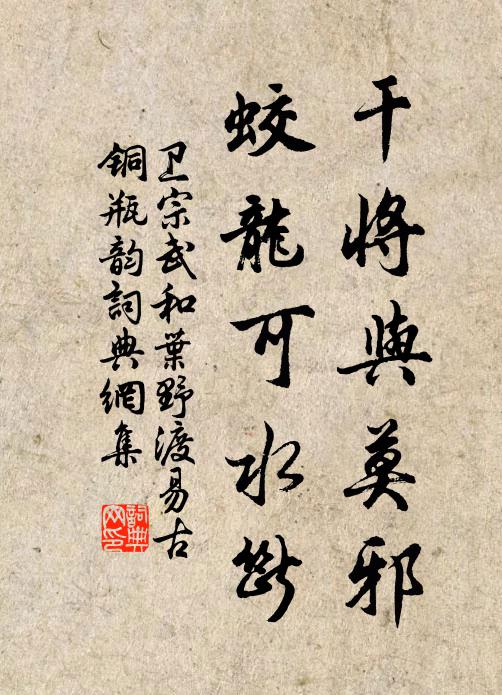 干將與莫邪
蛟龍可水斷
卫宗武和葉野渡易古
铜瓶韵詞典網集
詞典網印